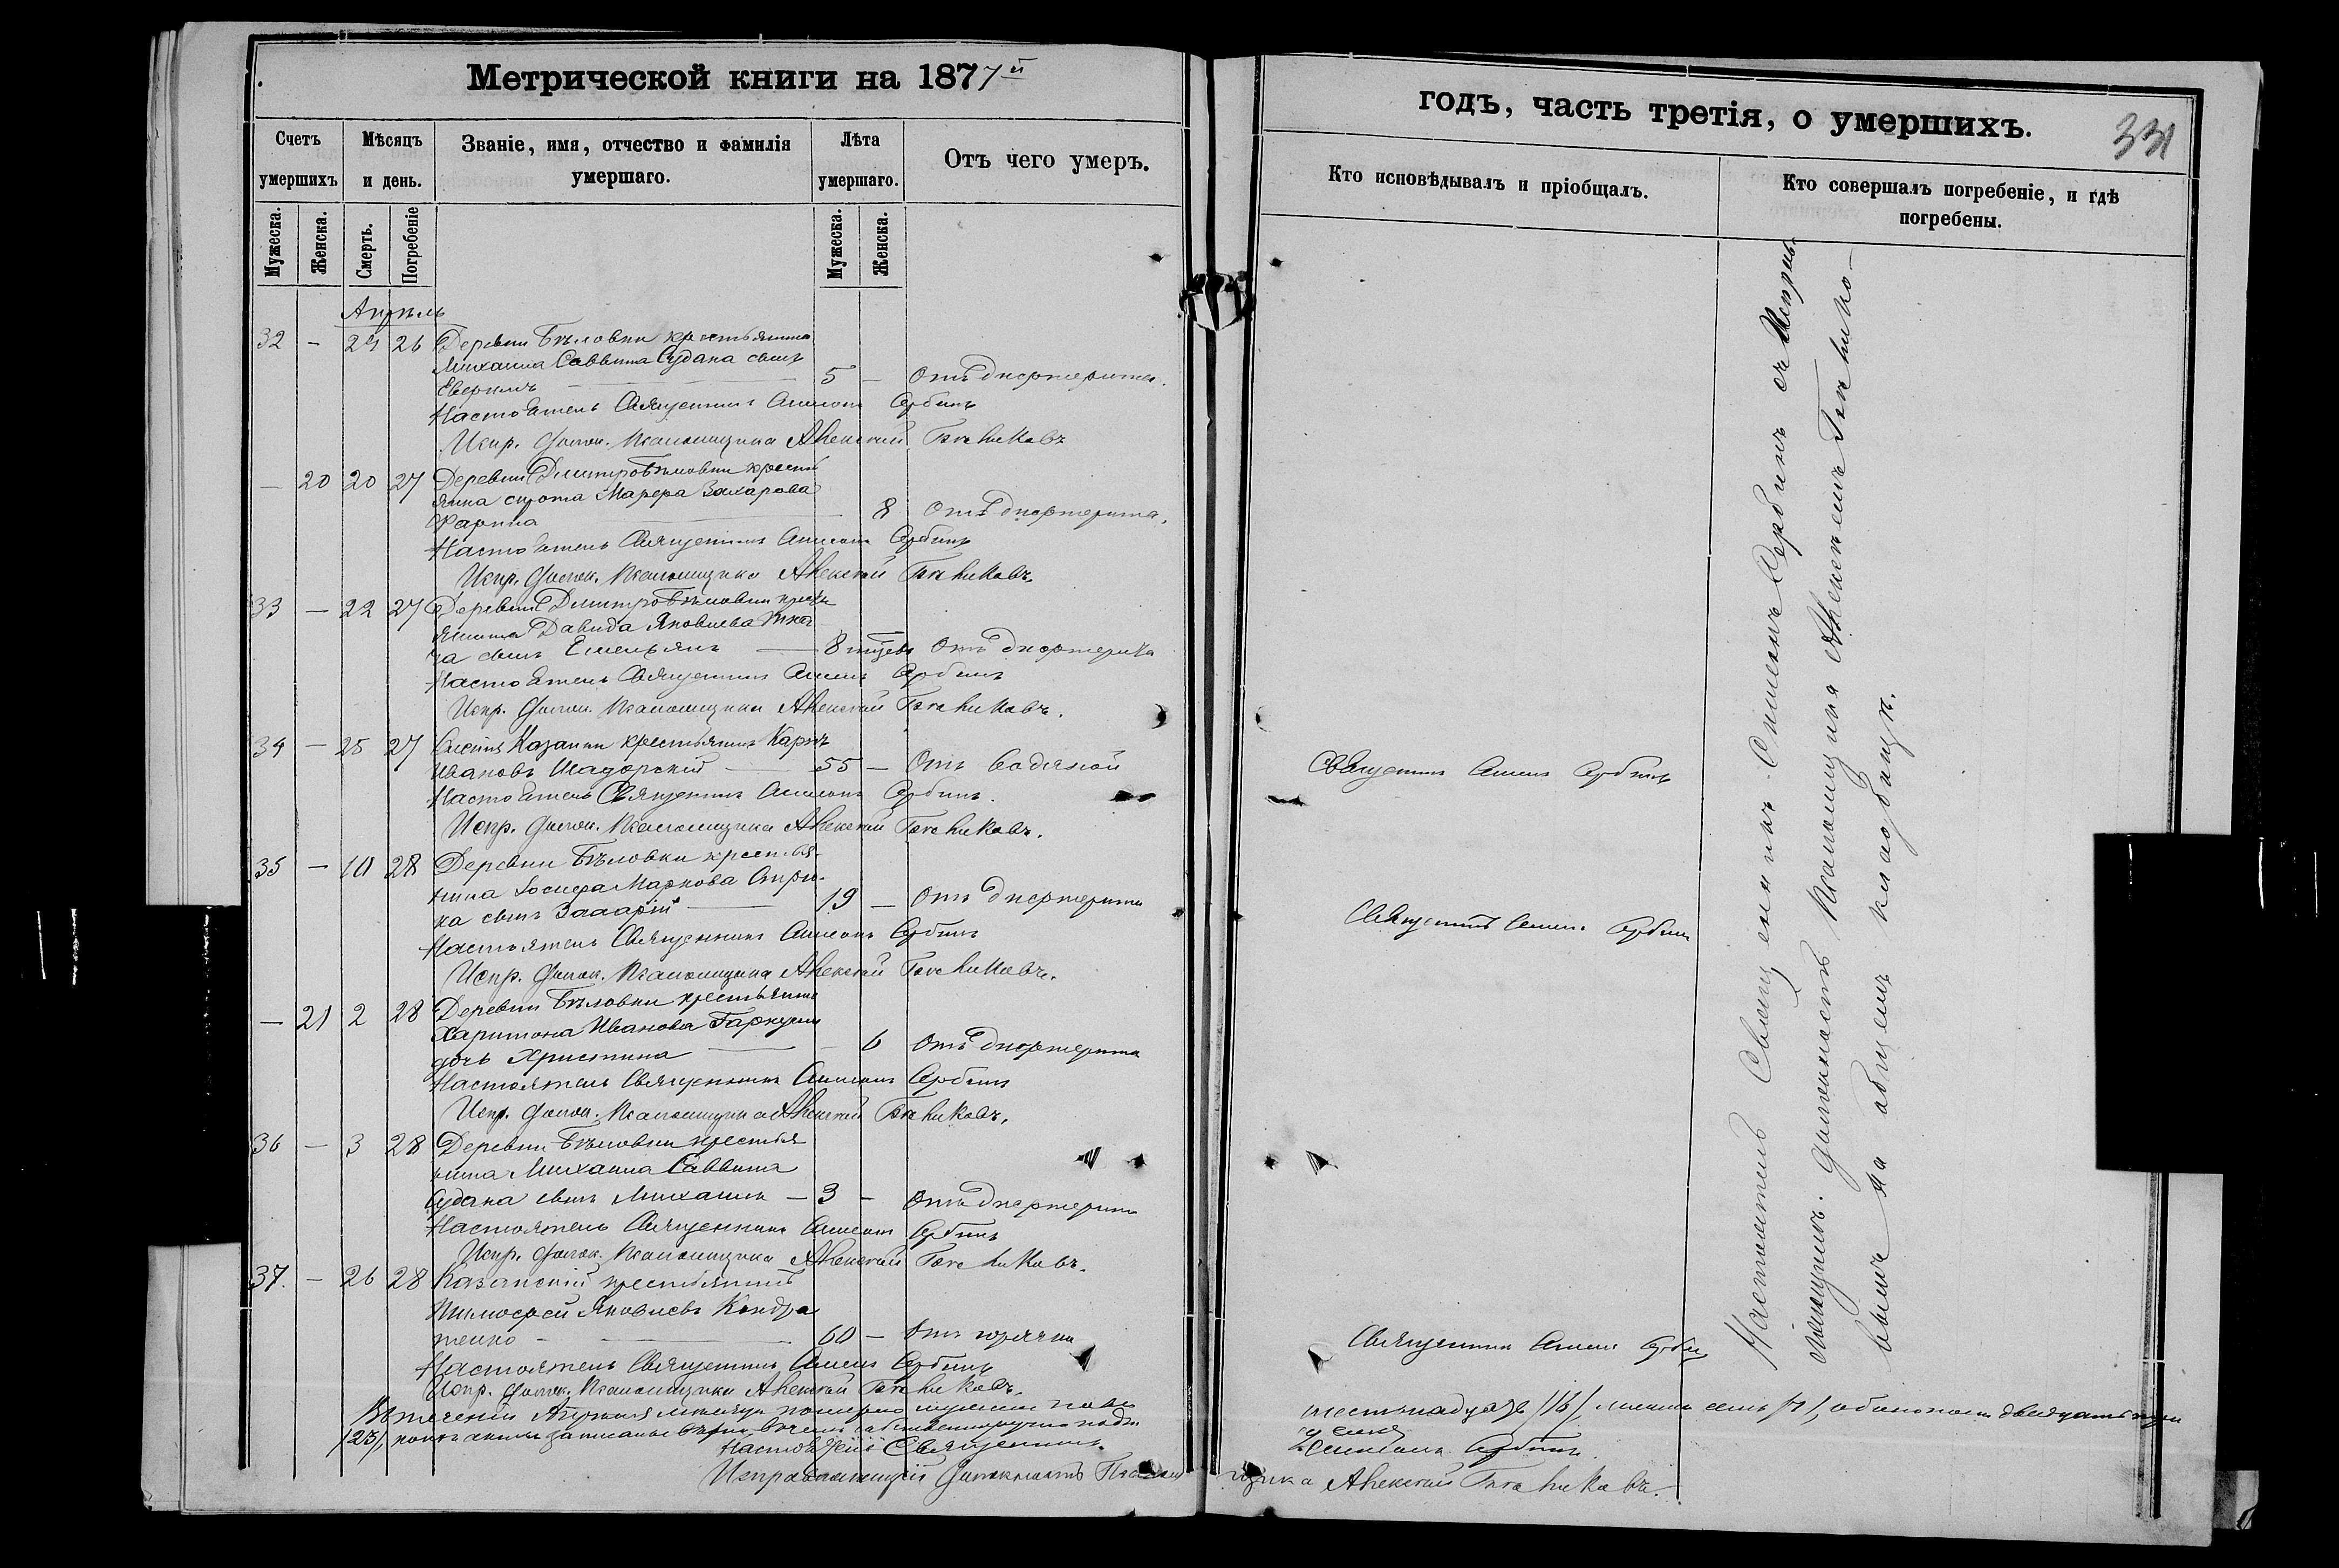 Метрической книги на 1877й
годъ, часть третія, о умершихъ.
331
Счетъ умершихъ
Мѣсяцъ и день.
Званіе, имя, отчество и фамилія умершаго.
Лѣта умершаго.
Отъ чего умеръ.
Кто исповѣдывалъ и пріобщалъ.
Кто совершалъ погребеніе, и гдѣ погребены.
Мужеска. Женска. Смерть. Погребеніе Мужеска. Женска.
Апрѣль
32 – 24 26 Деревни Бѣловки крестьянина
Михаила Саввина Судака сынъ
5 – Отъ дифтерита.
Настоятель Священникъ Симеонъ Сербинъ
Испр. должн. Псаломщика Алексѣй
– 20 20 27 Деревни Дмитро Бѣловки крестья
янка сирота Марфа Захарова
8 Отъ дифтерита.
Настоятель Священникъ Симеонъ Сербинъ
Испр. должн. Псаломщика Алексѣй
33 – 22 27 Деревни Дмитро Бѣловки
янина Давида Яковлева Тка
ча сынъ Емельянъ – 8 мѣсяц. Отъ дифтерита
Настоятель Священникъ Симеонъ Сербинъ
Испр. должн. Псаломщика Алексѣй
34 – 25 27 Казанки крестьянинъ Карпъ
Ивановъ – 55 – Отъ водяной
Священникъ Симеонъ Сербинъ
Настоятель Священникъ Симеонъ Сербинъ.
Испр. должн. Псаломщика Алексѣй
35 – 10 28 Деревни Бѣловки крестья-
нина Іосифа Маркова
ка сынъ Захарій – 19 – Отъ дифтерита
Священникъ Симеонъ Сербинъ
Настоятель Священникъ Симеонъ Сербинъ
Испр. должн. Псаломщика Алексѣй
– 21 2 28 Деревни Бѣловки крестьянина
Харитона Иванова Гаркуши
дочь Христина – 6 Отъ дифтерита
Настоятель Священникъ Симеонъ Сербинъ
Испр. должн. Псаломщика Алексѣй
36 – 3 28 Деревни Бѣловки крестья
нина Михаила Саввина
Судака сынъ Михаилъ – 3 – Отъ дифтерита
Настоятель Священникъ Симеонъ Сербинъ
Испр. должн. Псаломщика Алексѣй
37. – 26 28 Казанскій крестьянинъ
Тимофей Яковлевъ Кондра
тенко – 60 – Отъ горячки
Священникъ Симеонъ Сербинъ
Настоятель Священникъ Симеонъ Сербинъ
Испр. должн. Псаломщика Алексѣй
Настоятель Священникъ Симеонъ Сербинъ съ Исправ
ляющимъ должность Псаломщика Алексѣемъ
вымъ на общемъ кладбищѣ.
Въ теченіи Апрѣля мѣсяца померло мужеска пола шестнадцать /16/, женска семь /7/, обоихъ двадцать три
/23/,
Настоятель Священникъ Симеонъ Сербинъ
Исправляющій должность Псаломщика Алексѣй